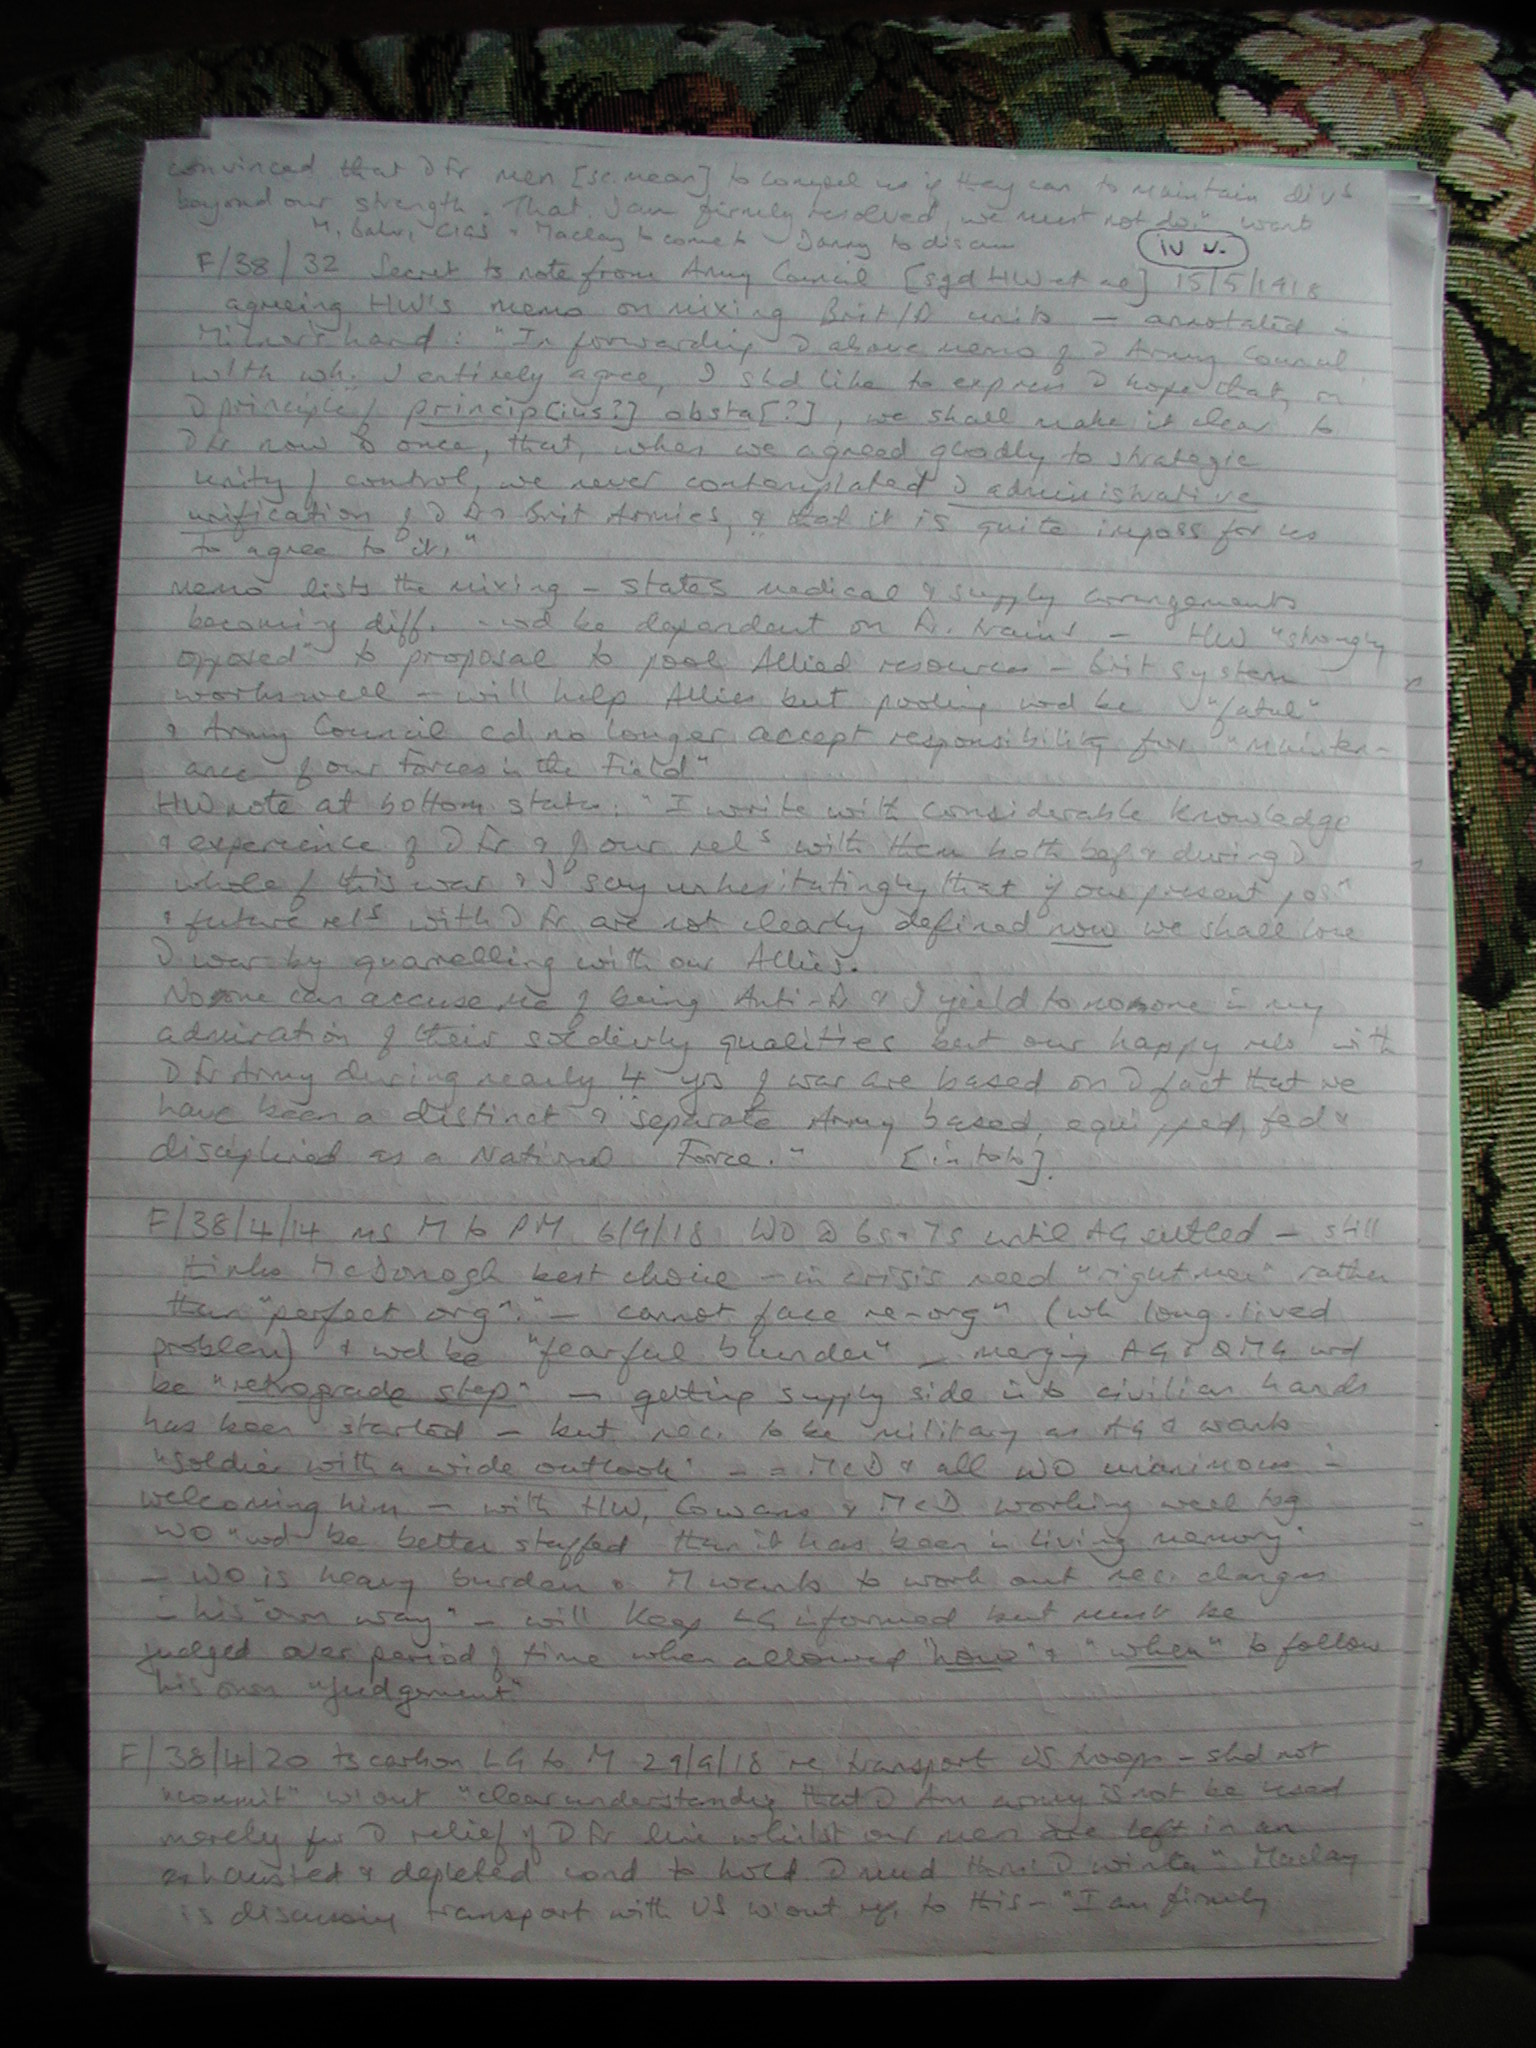 convinced that D Fr men [sc. mean] to compel us if they can to maintain divs
beyond our strength. That, I am firmly resolved, we must not do." want
M, Balr, CIGS & Maclay to come to Danny to discuss
iv v.
F/38/ 32 Secret ts note from Army Council [sgd HW et al] 15/5/1918
agreeing HW's memo on mixing Brit/Fr units – annotated in
Milner's hand: "In forwarding D above memo of D Army Council
with wh. I entirely agree, I shd like to express D hope that, on
D principle of princip[iis?] obsta[?], we shall make it clear to
D Fr now & once, that, when we agreed gladly to strategic
unity of control, we never contemplated D administrative
unification of D Fr & Brit Armies, & that it is quite imposs for us
to agree to it."
memo lists the mixing – states medical & supply arrangements
becoming diff. – wd be dependent on Fr. trains – HW "strongly
opposed" to proposal to pool Allied resources – Brit system
works well – will help Allies but pooling wd be "fatal"
& Army Council cd no longer accept responsibility for "mainten-
ance of our Forces in the Field"
HW note at bottom states: "I write with considerable knowledge
& experience of D Fr & of our rels with them both bef & during D
whole of this war & I say unhesitatingly that if our present posn
& future rels with D Fr are not clearly defined now we shall lose
D war by quarrelling with our Allies.
No one can accuse me of being Anti-Fr & I yield to no one in my
admiration of their soldierly qualities but our happy rels with
D Fr Army during nearly 4 yrs of war are based on D fact that we
have been a distinct & separate Army based, equipped, fed &
disciplined as a National Force." [in toto].
F/38/4/14 ms M to PM 6/9/18 WO @ 6s & 7s until AG settled – still
thinks McDonogh best choice – in crisis need "right men" rather
than "perfect orgn." – cannot face re-orgn (wh long-lived
problem) & wd be "fearful blunder" – merging AG & QMG wd
be "retrograde step" – getting supply side into civilian hands
has been started – but nec. to be military as AG & wants
"soldier with a wide outlook" – = McD & all WO unanimous in
welcoming him – with HW, Cowans & McD working well tog
WO "wd be better staffed than it has been in living memory"
– WO is heavy burden & M wants to work out nec. changes
in his "own way" – will keep LG informed but must be
judged over period of time when allowed "how" & "when" to follow
his own "judgement"
F/38/4/20 ts carbon LG to M 29/9/18 re, transport US troops – shd not
"commit" w'out "clear understanding that D Am army is not be used
merely for D relief of D Fr line whilst our men are left in an
exhausted & depleted cond to hold D mud thro' D winter" Maclay
is discussing transport with US w'out ref. to this – "I am firmly